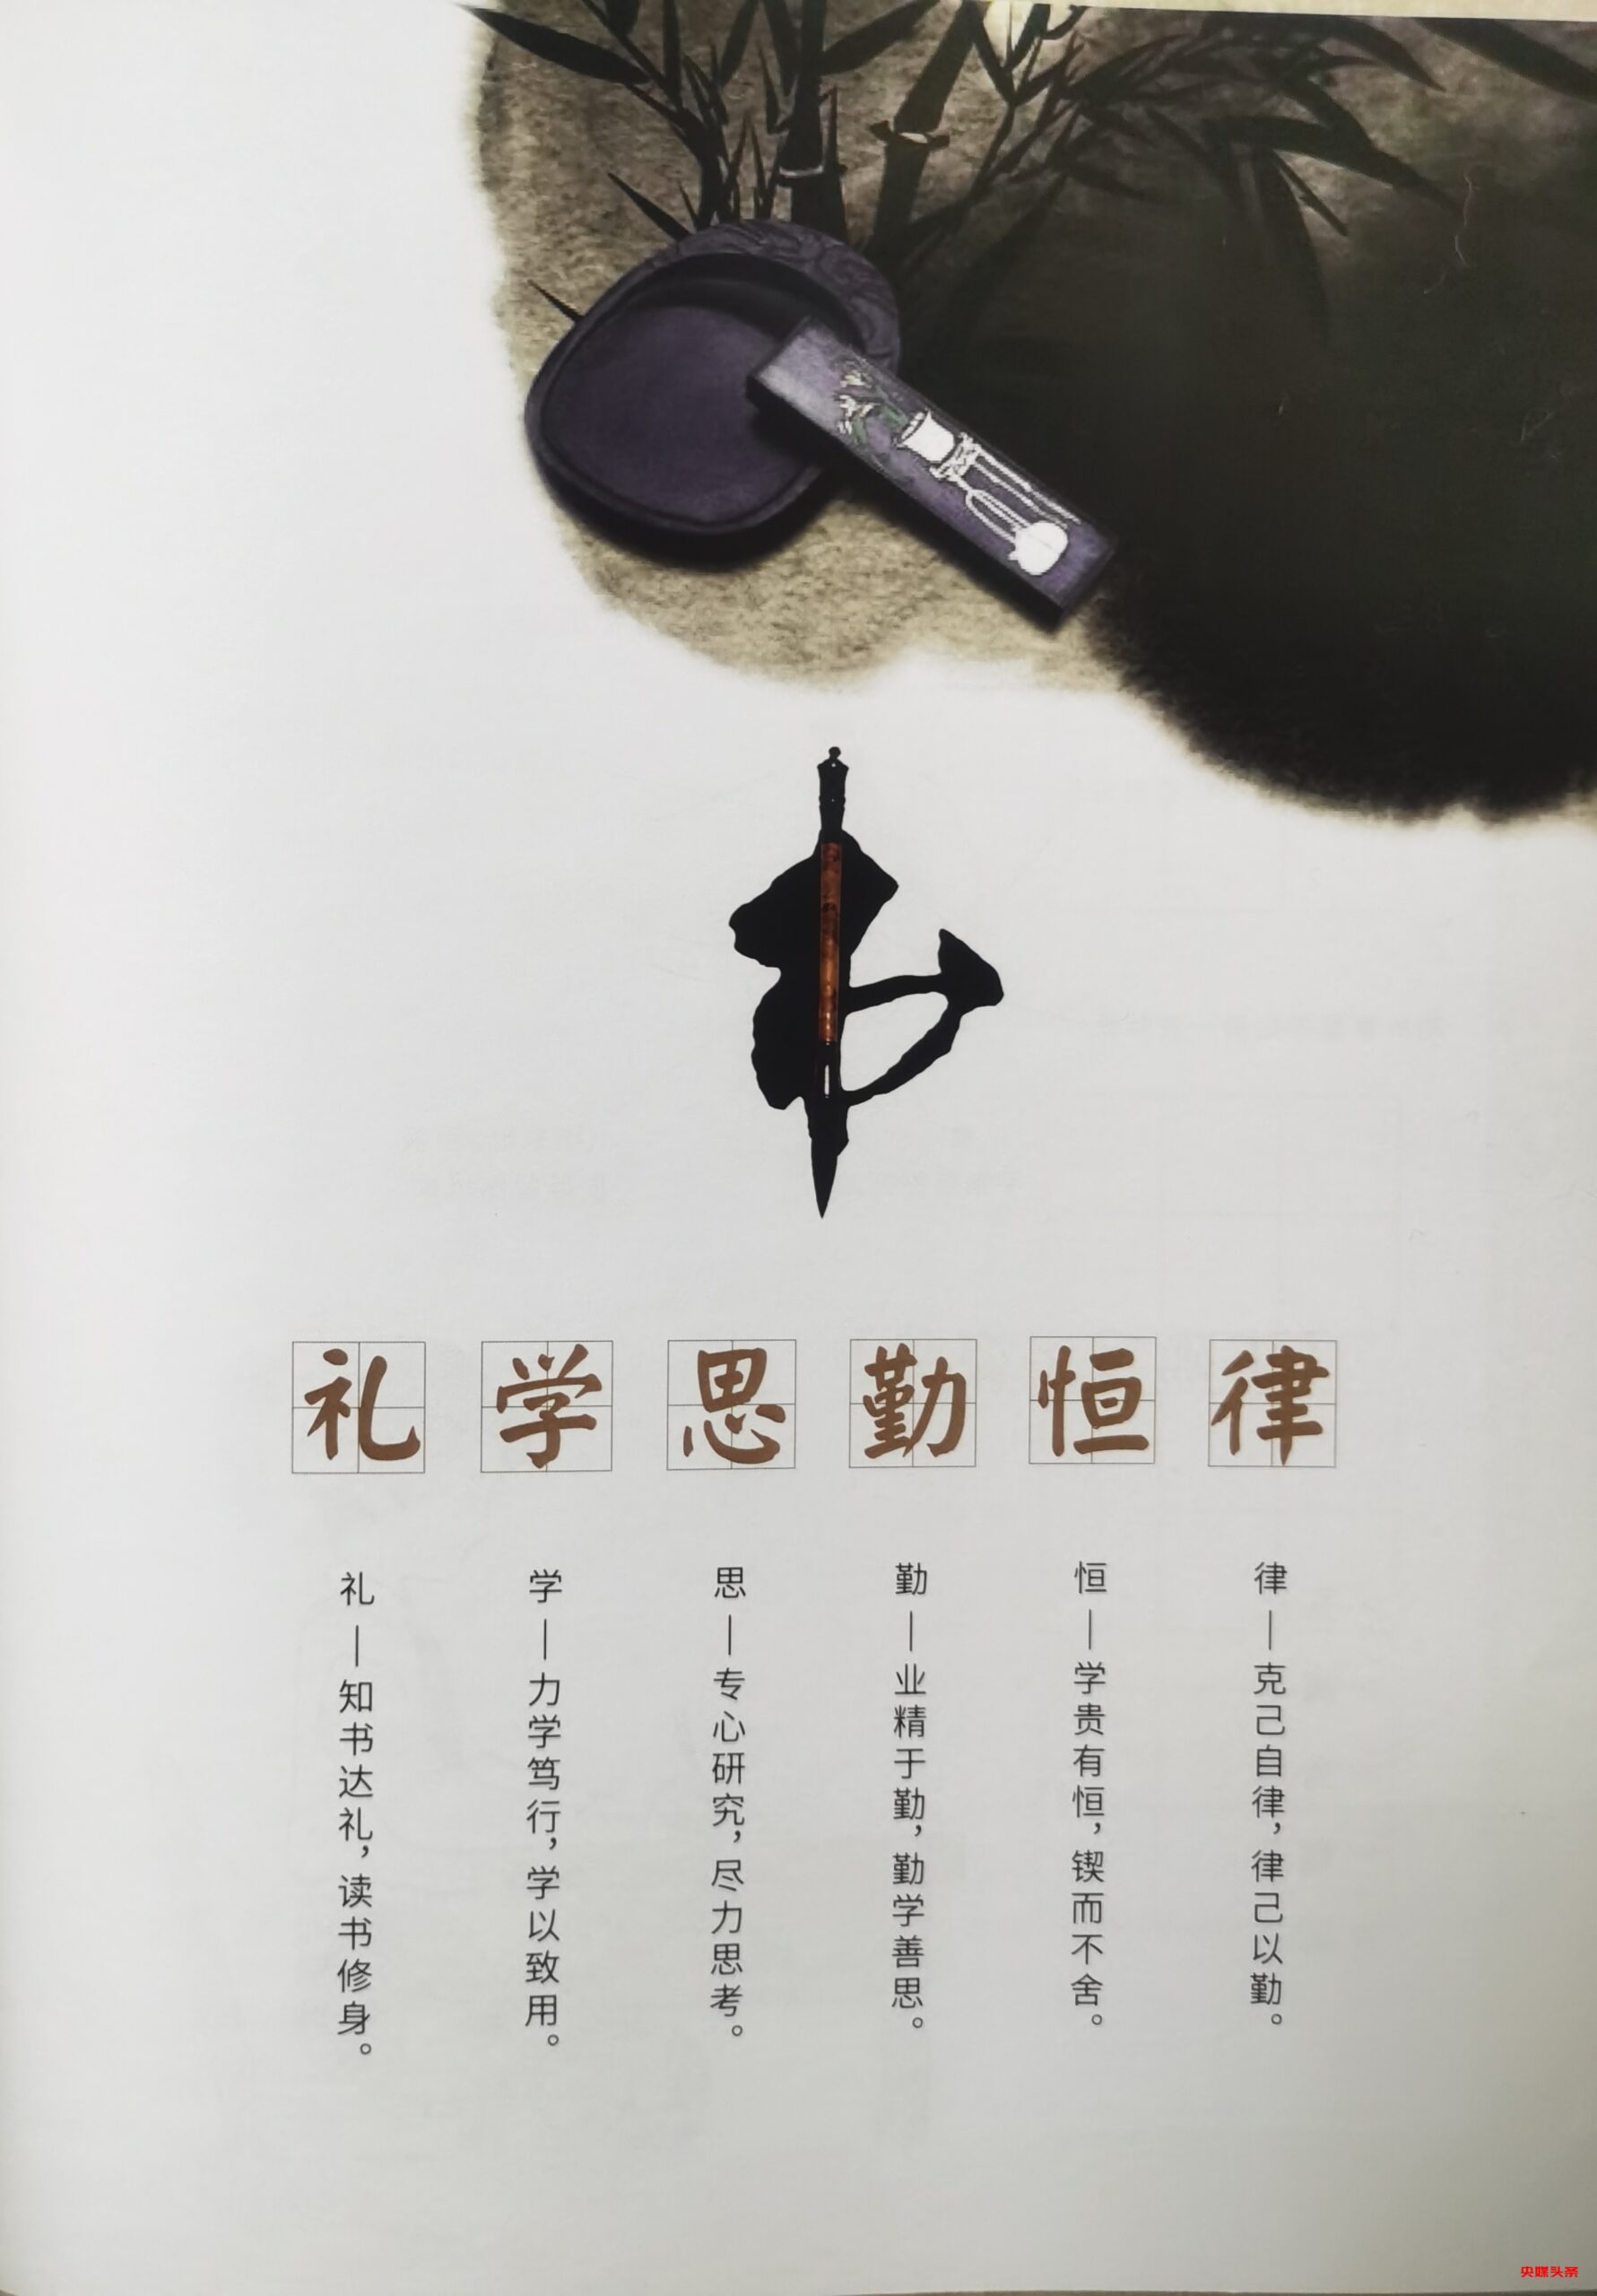 礼 学 思 勤 恒 律
礼—知书达礼，读书修身。
学—力学笃行，学以致用。
思—专心研究，尽力思考。
勤—业精于勤，勤学善思。
恒—学贵有恒，锲而不舍。
律—克己自律，律己以勤。
央媒头条